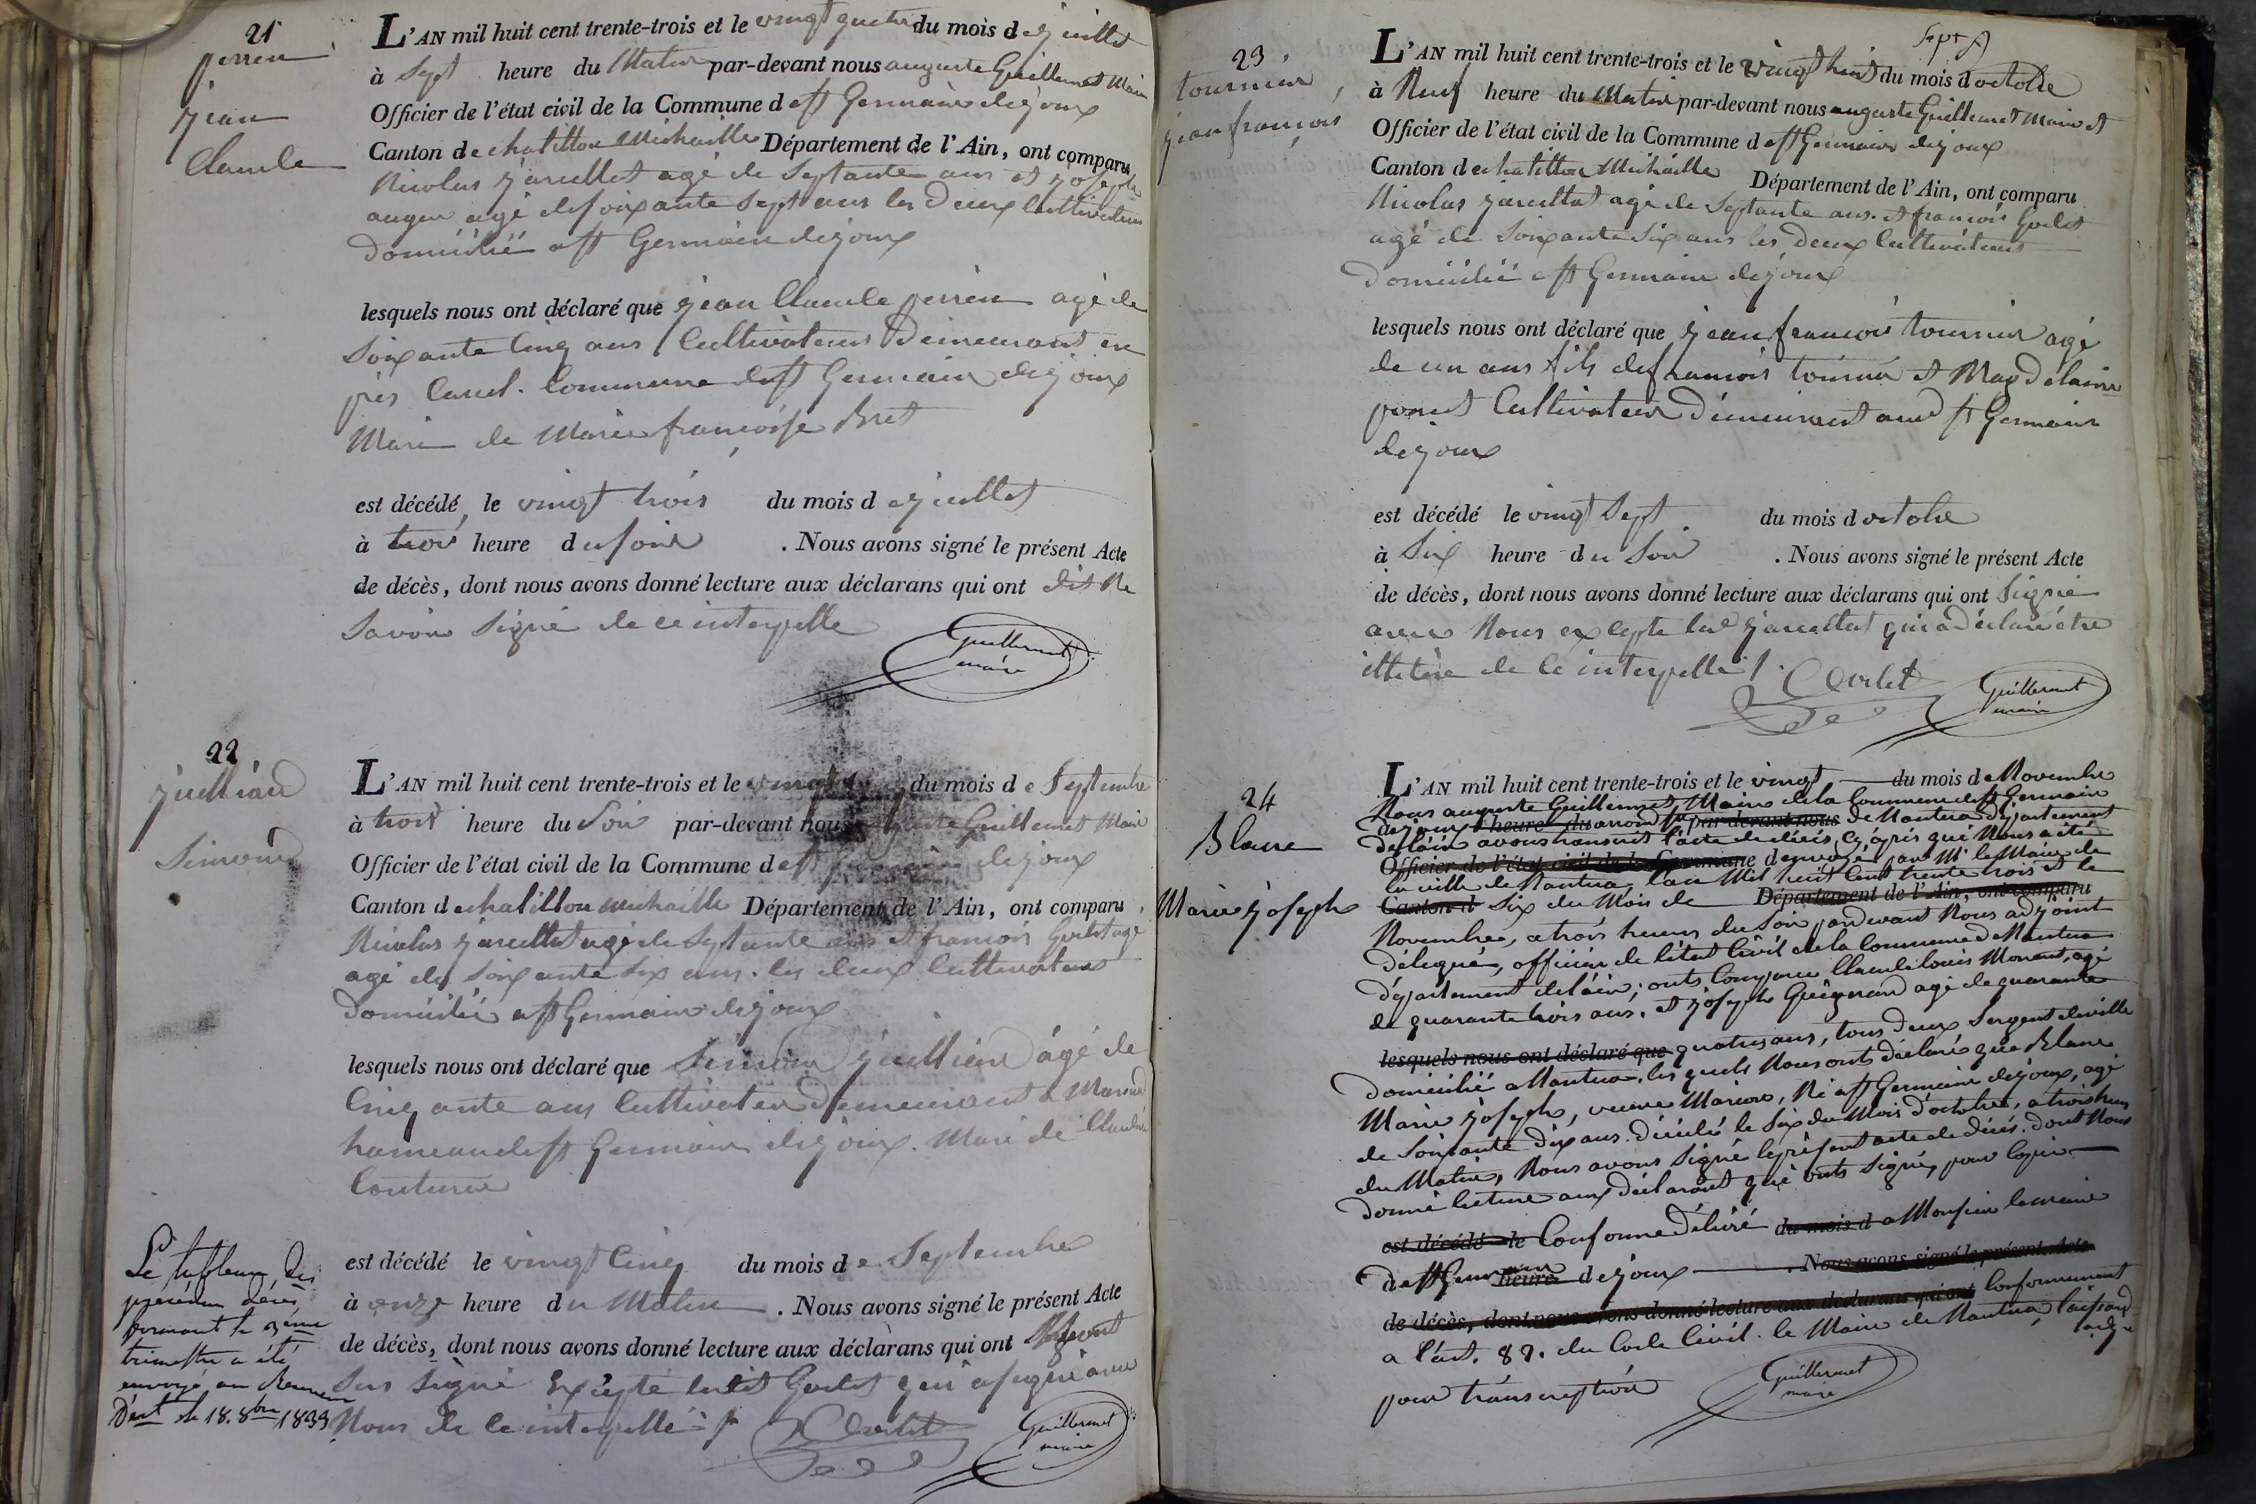 21
perrin
jean
Claude
L'AN mil huit cent trente-trois et le vingt quatre du mois de juillet
à Sept heure du Matin par-devant nous auguste Guillermet Maire
Officier de l'état civil de la Commune d e St Germain dejoux
Canton de chatillon Michaille Département de l'Ain, ont comparu
Nicolas jarcellat agé de Septante ans et joseph
auger agé desoixante Sept ans les Deux Cultivateurs
Domicilié a St Germain dejoux
lesquels nous ont déclaré que jean Claude perrin agé de
Soixante Cinq ans Cultivateur Demeurant en
pres Commune de St Germain dejoux
Mari de Marie françoise Bret
est décédé, le vingt trois du mois d e juillet
à trois heure d u soir . Nous avons signé le présent Acte
de décès, dont nous avons donné lecture aux déclarans qui ont dit Ne
Savoir Signé de ce interpellé
Guillermet
maire
22
juilliard
Simond
L'AN mil huit cent trente-trois et le vingt du mois d e Septembre
à trois heure du Soir par-devant nous auguste Guillermet Maire
Officier de l'état civil de la Commune d e St germain dejoux
Canton d echatillon michaille Département de l'Ain, ont comparu
Nicolas jarcellat agé de Septante ans et françois Godet agé
agé de Soixante Six ans. les deux Cultivateurs
Domicilié a St Germain dejoux
lesquels nous ont déclaré que Simon âgé de
Cinquante ans Cultivateur Demeurant a
hameau de St Germain dejoux. Mari de
Couturier
est décédé le vingt Cinq du mois d e Septembre
à onze heure d u Matin . Nous avons signé le présent Acte
de décès, dont nous avons donné lecture aux déclarans qui ont
Signé Excepte ledit Godet qui a signé avec
Nous de ce interpellé
Godet
Guillermet
maire
Le tableau des
décès,
formant le 3eme
trimestre a été
envoyé au
le 18. 8bre 1833
23
tournier
jean françois
L'AN mil huit cent trente-trois et le vingt huit du mois d octobre
à Neuf heure du Matin par-devant nous auguste Guillermet Maire et
Officier de l'état civil de la Commune d e St Germain dejoux
Canton d e chatillon Michaille Département de l'Ain, ont comparu
Nicolas jarcellat agé de Septante ans. et françois Godet
agé de Soixante Six ans les deux Cultivateurs
Domicilié a St Germain dejoux
lesquels nous ont déclaré que jean françois tournier agé
de un ans fils de françois tournier et Magdelaine
poncet Cultivateur Demeurant aud St Germain
dejoux
est décédé le vingt Sept du mois d octobre
à Six heure d u Soir . Nous avons signé le présent Acte
de décès, dont nous avons donné lecture aux déclarans qui ont Signé
avec Nous excepte led jarcellat qui a déclaré être
illiteré de Ce interpellé
Godet
Guillermet
maire
24
Blanc
Marie joseph
L'AN mil huit cent trente-trois et le vingt du mois d e Novembre
Nous auguste Guillermet Maire de la Commune de St Germain
dejoux heure du arrond par-devant nous de Nantua Département
de lain avons transcrit l'acte de décès Cy après que Nous a été
Officier de l'état civil de la Commune d envoyé par Mr le Maire de
la ville de Nantua, l'an Mil huit Cent trente trois et le
Canton d Six du Mois de Département de l'Ain, ont comparu
Novembre, a trois heures du Soir pardevant Nous adjoint
délégué, officier de létat Civil de la Commune de Nantua
département delain; onts Comparu Claude Louis Monant, agé
de quarante trois ans, et joseph Guignard agé de quarante
lesquels nous ont déclaré que quatre ans, tous deux Sergent deville
domicilié a Nantua. les quels Nous onts déclaré que Blanc
Marie joseph, veuve Marion, Né a St Germain dejoux, agé
de Soixante Dix ans. décédé le Six du Mois d'octobre, a trois heures
du Matin, Nous avons Signé le présent acte de décès. dont Nous
donné lecture aux déclarant qui onts Signé, pour Copie
est décédé le Conforme Délivré du mois d a Monsieur le maire
de St Germain heure dejoux . Nous avons signé le présent Acte
de décès, dont nous avons donné lecture aux déclarans qui ont Conformement
a l'art. 82. du Code Civil. le Maire de Nantua
pour transcription
Guillermet
maire